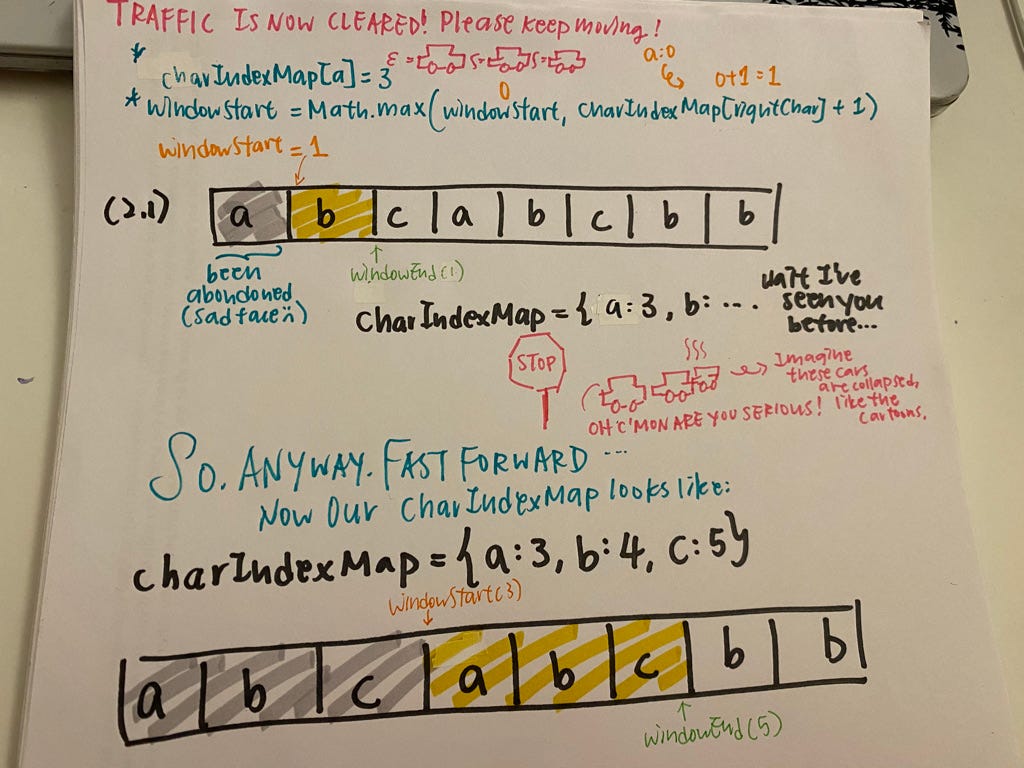 TRAFFIC IS NOW CLEARED! Please keep moving!
* charIndexMap[a] = 3
a:0
0+1=1
0
* windowStart = Math.max(windowStart, charIndexMap[rightChar] + 1)
windowStart = 1
(2.1)
a b c a b c b b
been
abondoned
(sad face
windowEnd(1)
charIndexMap = { a:3, b: ....
wait I've
seen you
before...
STOP
Imagine
these cars
are collapsed,
like the
cartoons.
OH C'MON ARE YOU SERIOUS!
So. ANYWAY. FAST FORWARD ...
Now Our CharIndexMap looks like:
charIndexMap = {a:3, b:4, c:5}
windowStart(3)
a b c a b c b b
windowEnd(5)